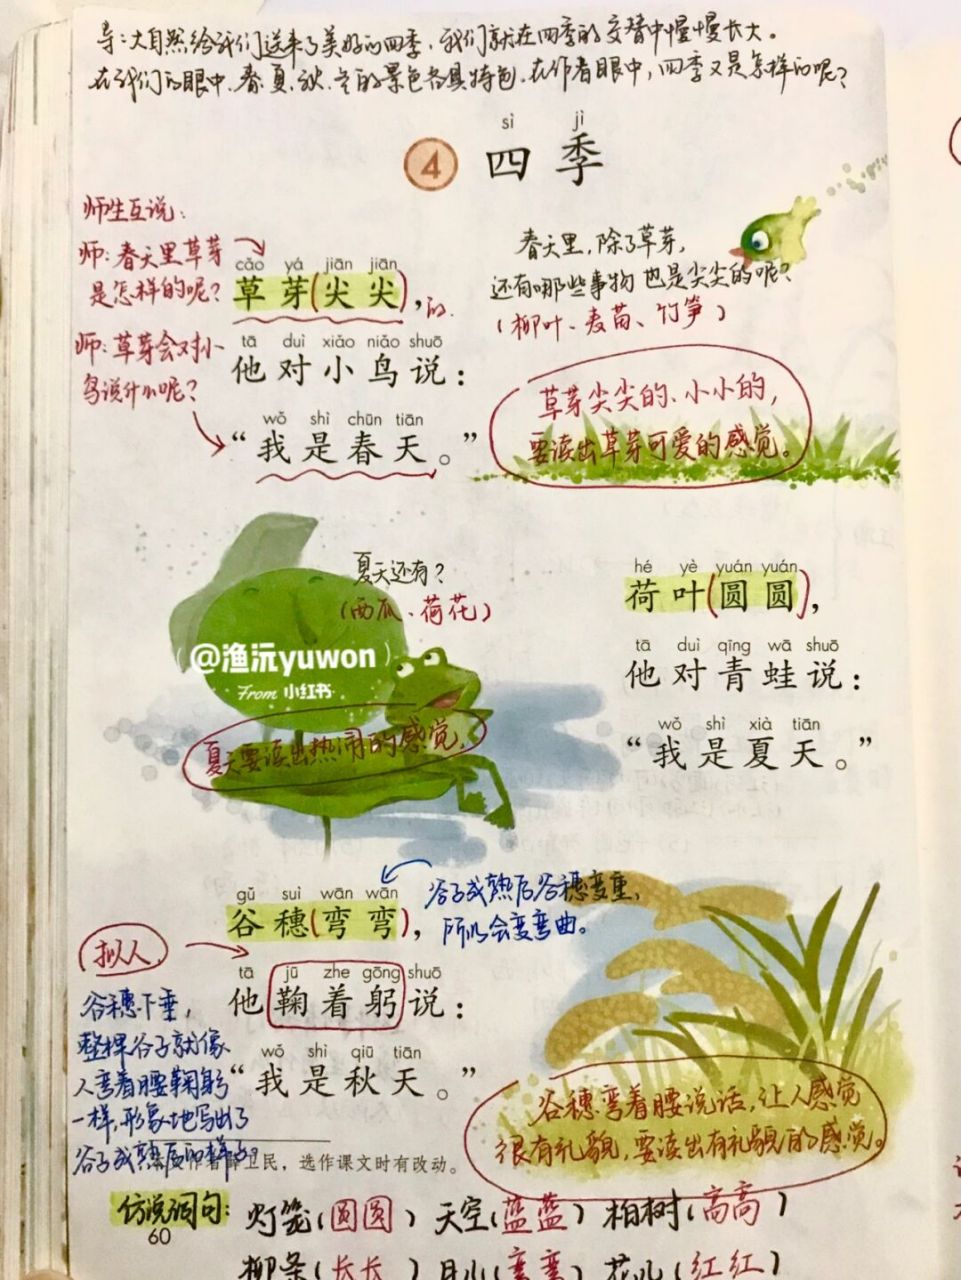 导:大自然给我们送来了美好的四季,我们就在四季的交替中慢慢长大。
在我们的眼中,春、夏、秋、冬的景色各具特色,在作者眼中,四季又是怎样的呢?
sì jì
4 四季
师生互说:
师:春天里草芽
是怎样的呢?
cǎo yá jiān jiān
草芽(尖尖),的.
春天里,除了草芽,
还有哪些事物也是尖尖的呢?
(柳叶、麦苗、竹笋)
师:草芽会对小
鸟说什么呢?
tā duì xiǎo niǎo shuō
他对小鸟说:
wǒ shì chūn tiān
“我是春天。”
草芽尖尖的、小小的,
要读出草芽可爱的感觉。
夏天还有?
(西瓜、荷花)
hé yè yuán yuán
荷叶(圆圆),
tā duì qīng wā shuō
他对青蛙说:
wǒ shì xià tiān
“我是夏天。”
@渔沅yuwon
From 小红书
夏天要读出热闹的感觉,
gǔ suì wān wān
谷穗(弯弯),
谷子成熟后谷穗变重,
所以会变弯曲。
拟人
tā jū zhe gōng shuō
他鞠着躬说:
wǒ shì qiū tiān
“我是秋天。”
谷穗下垂,
整棵谷子就像
人弯着腰鞠躬
一样,形象地写出了
谷子成熟后的样子。
谷穗弯着腰说话,让人感觉
很有礼貌,要读出有礼貌的感觉。
民,选作课文时有改动。
仿说词句:灯笼(圆圆) 天空(蓝蓝) 柏树(高高)
60
柳条(长长) 月儿(弯弯) 花儿(红红)